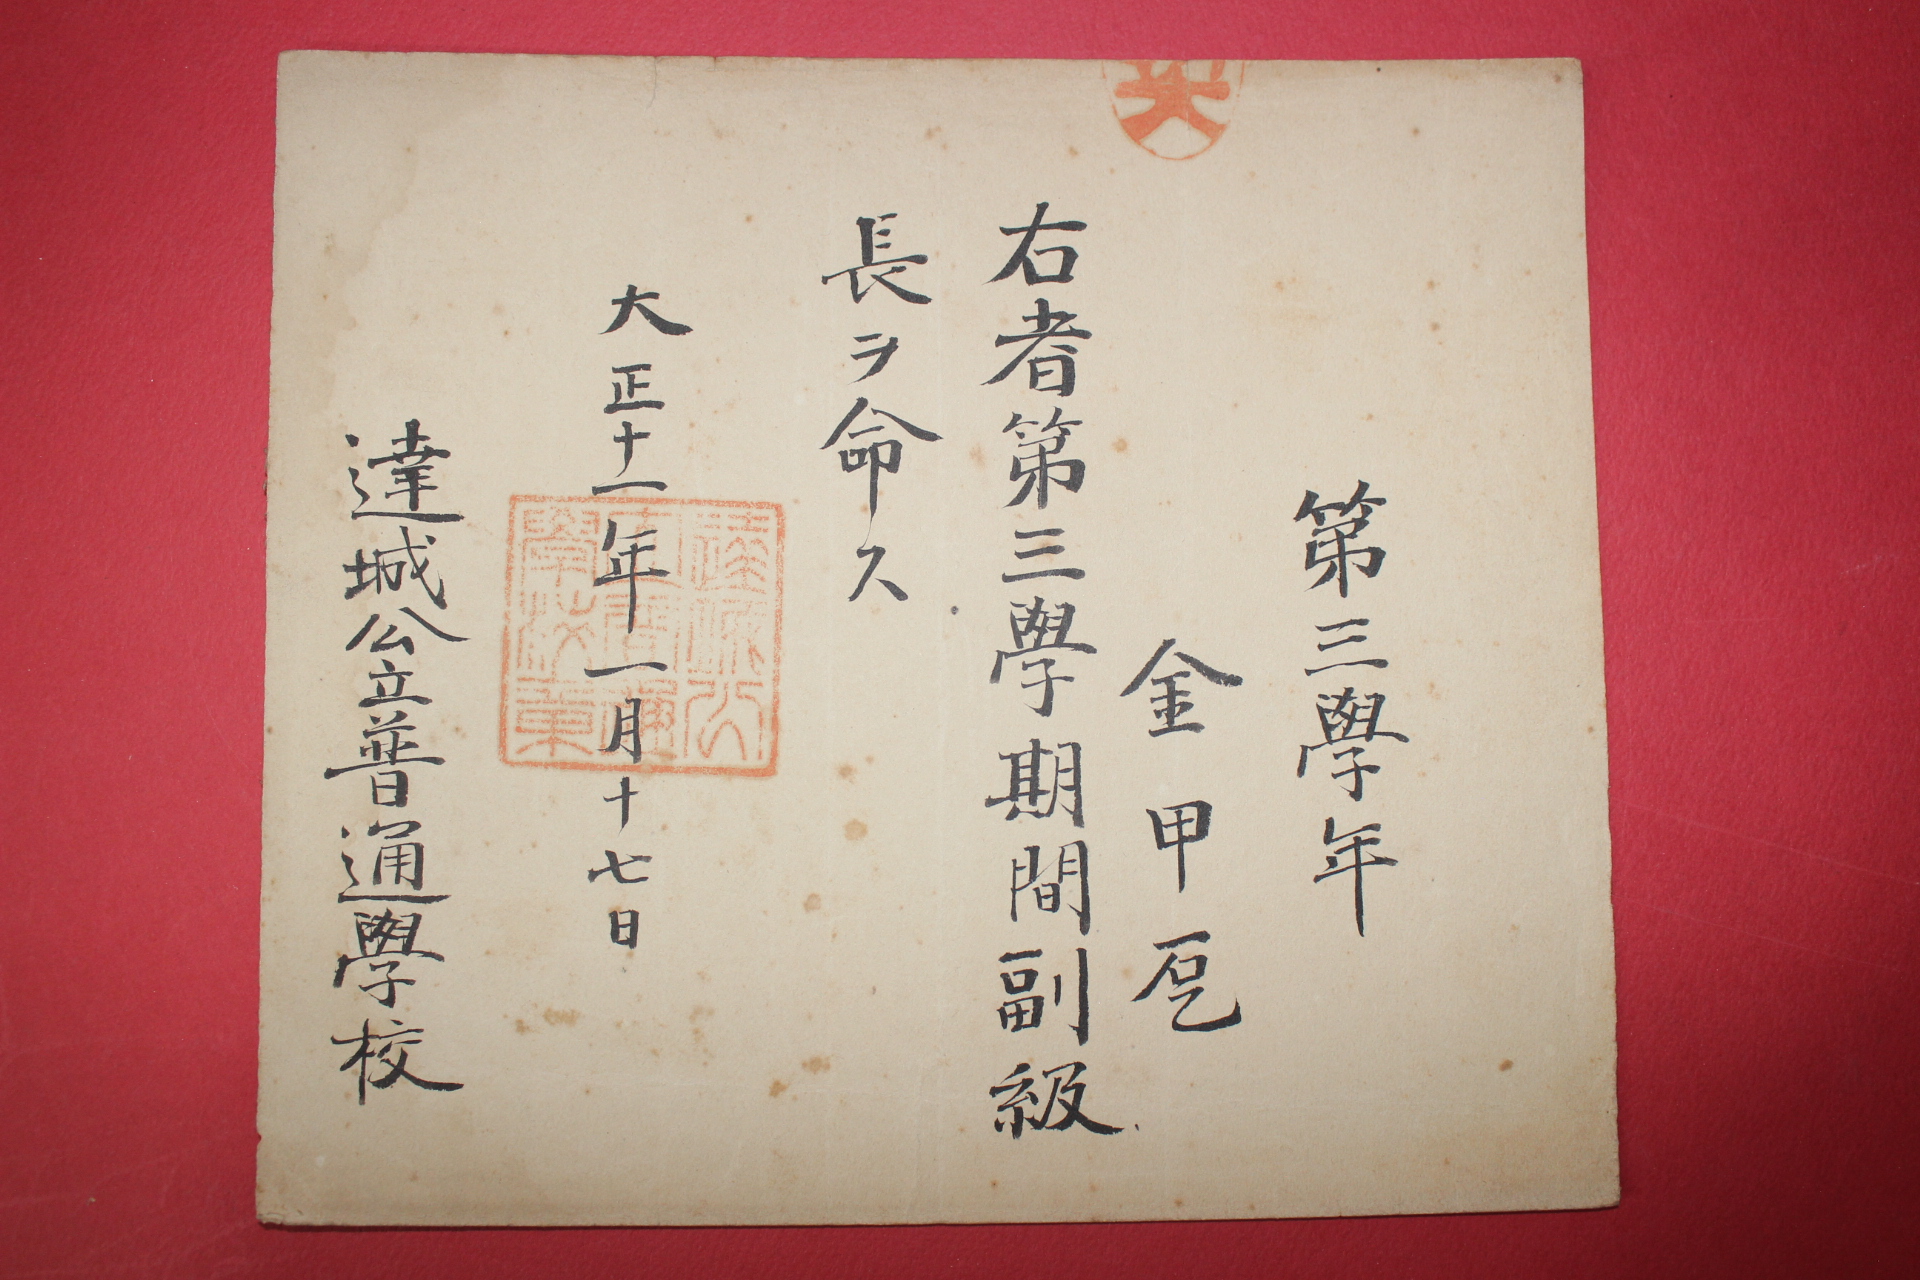 第三學年
金甲乭
右者第三學期間副級
長ヲ命ス
大正十一年一月十七日
達城公立普通學校
達城公
立普通
學校